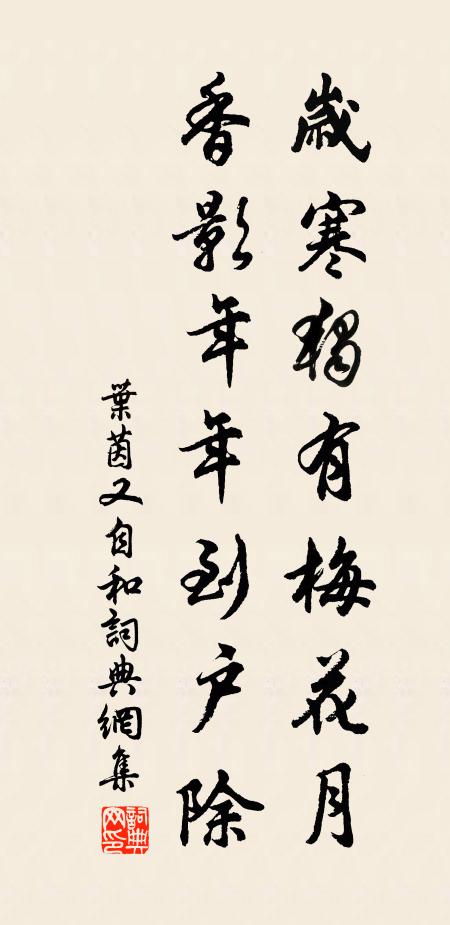 歲寒獨有梅花月
香影年年到户除
葉茵又自和詞典網集
詞典網印